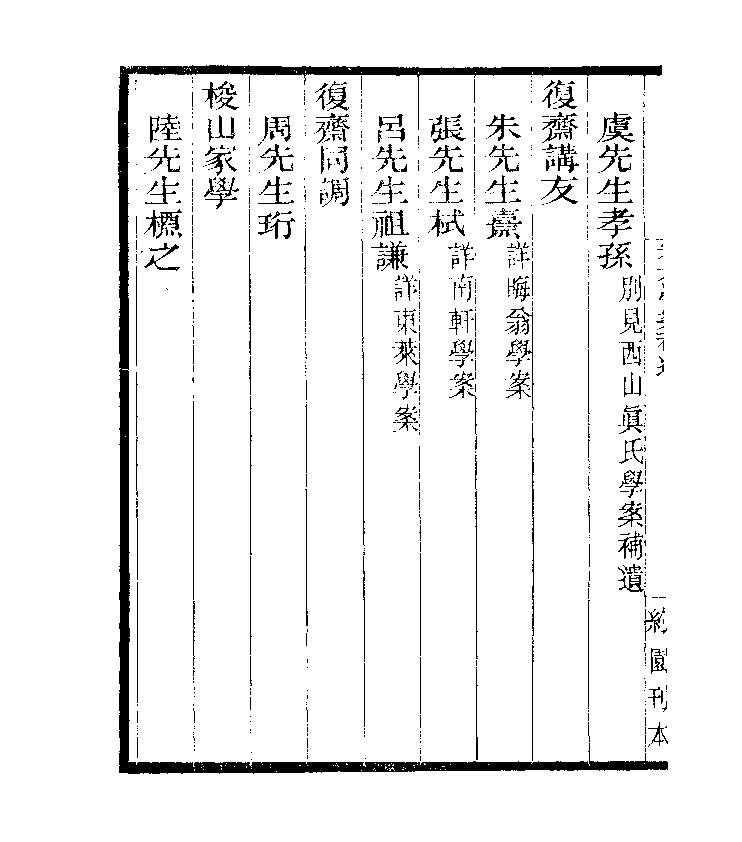 虞先生孝孫 別見西山眞氏學案補遺
復齋講友
朱先生熹 詳晦翁學案
張先生栻 詳南軒學案
呂先生祖謙 詳東萊學案
復齋同調
周先生珩
梭山家學
陸先生槱之
約園刊本